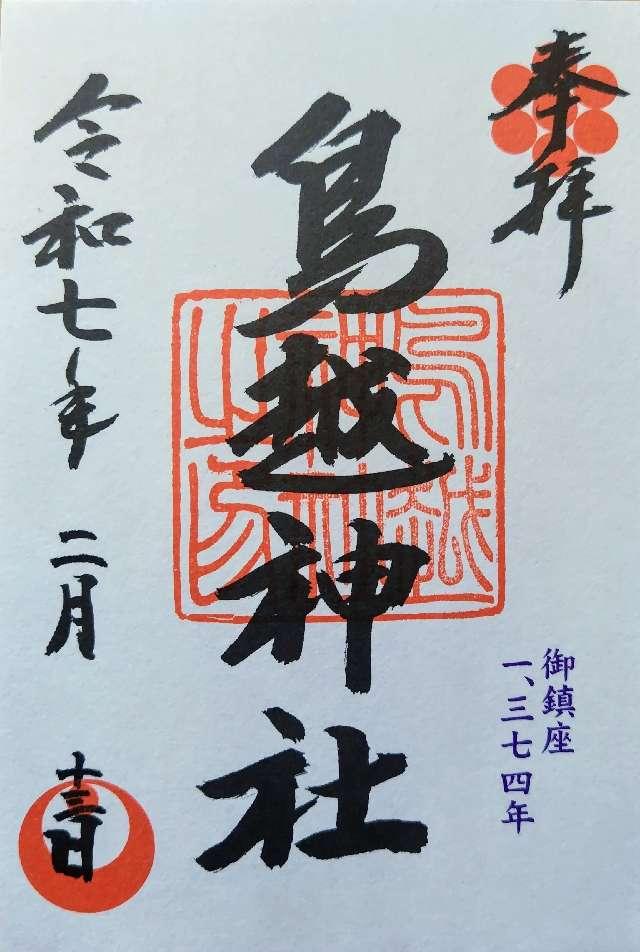 奉拝
鳥越神社
御鎮座
一、三七四年
令和七年 二月
十三日